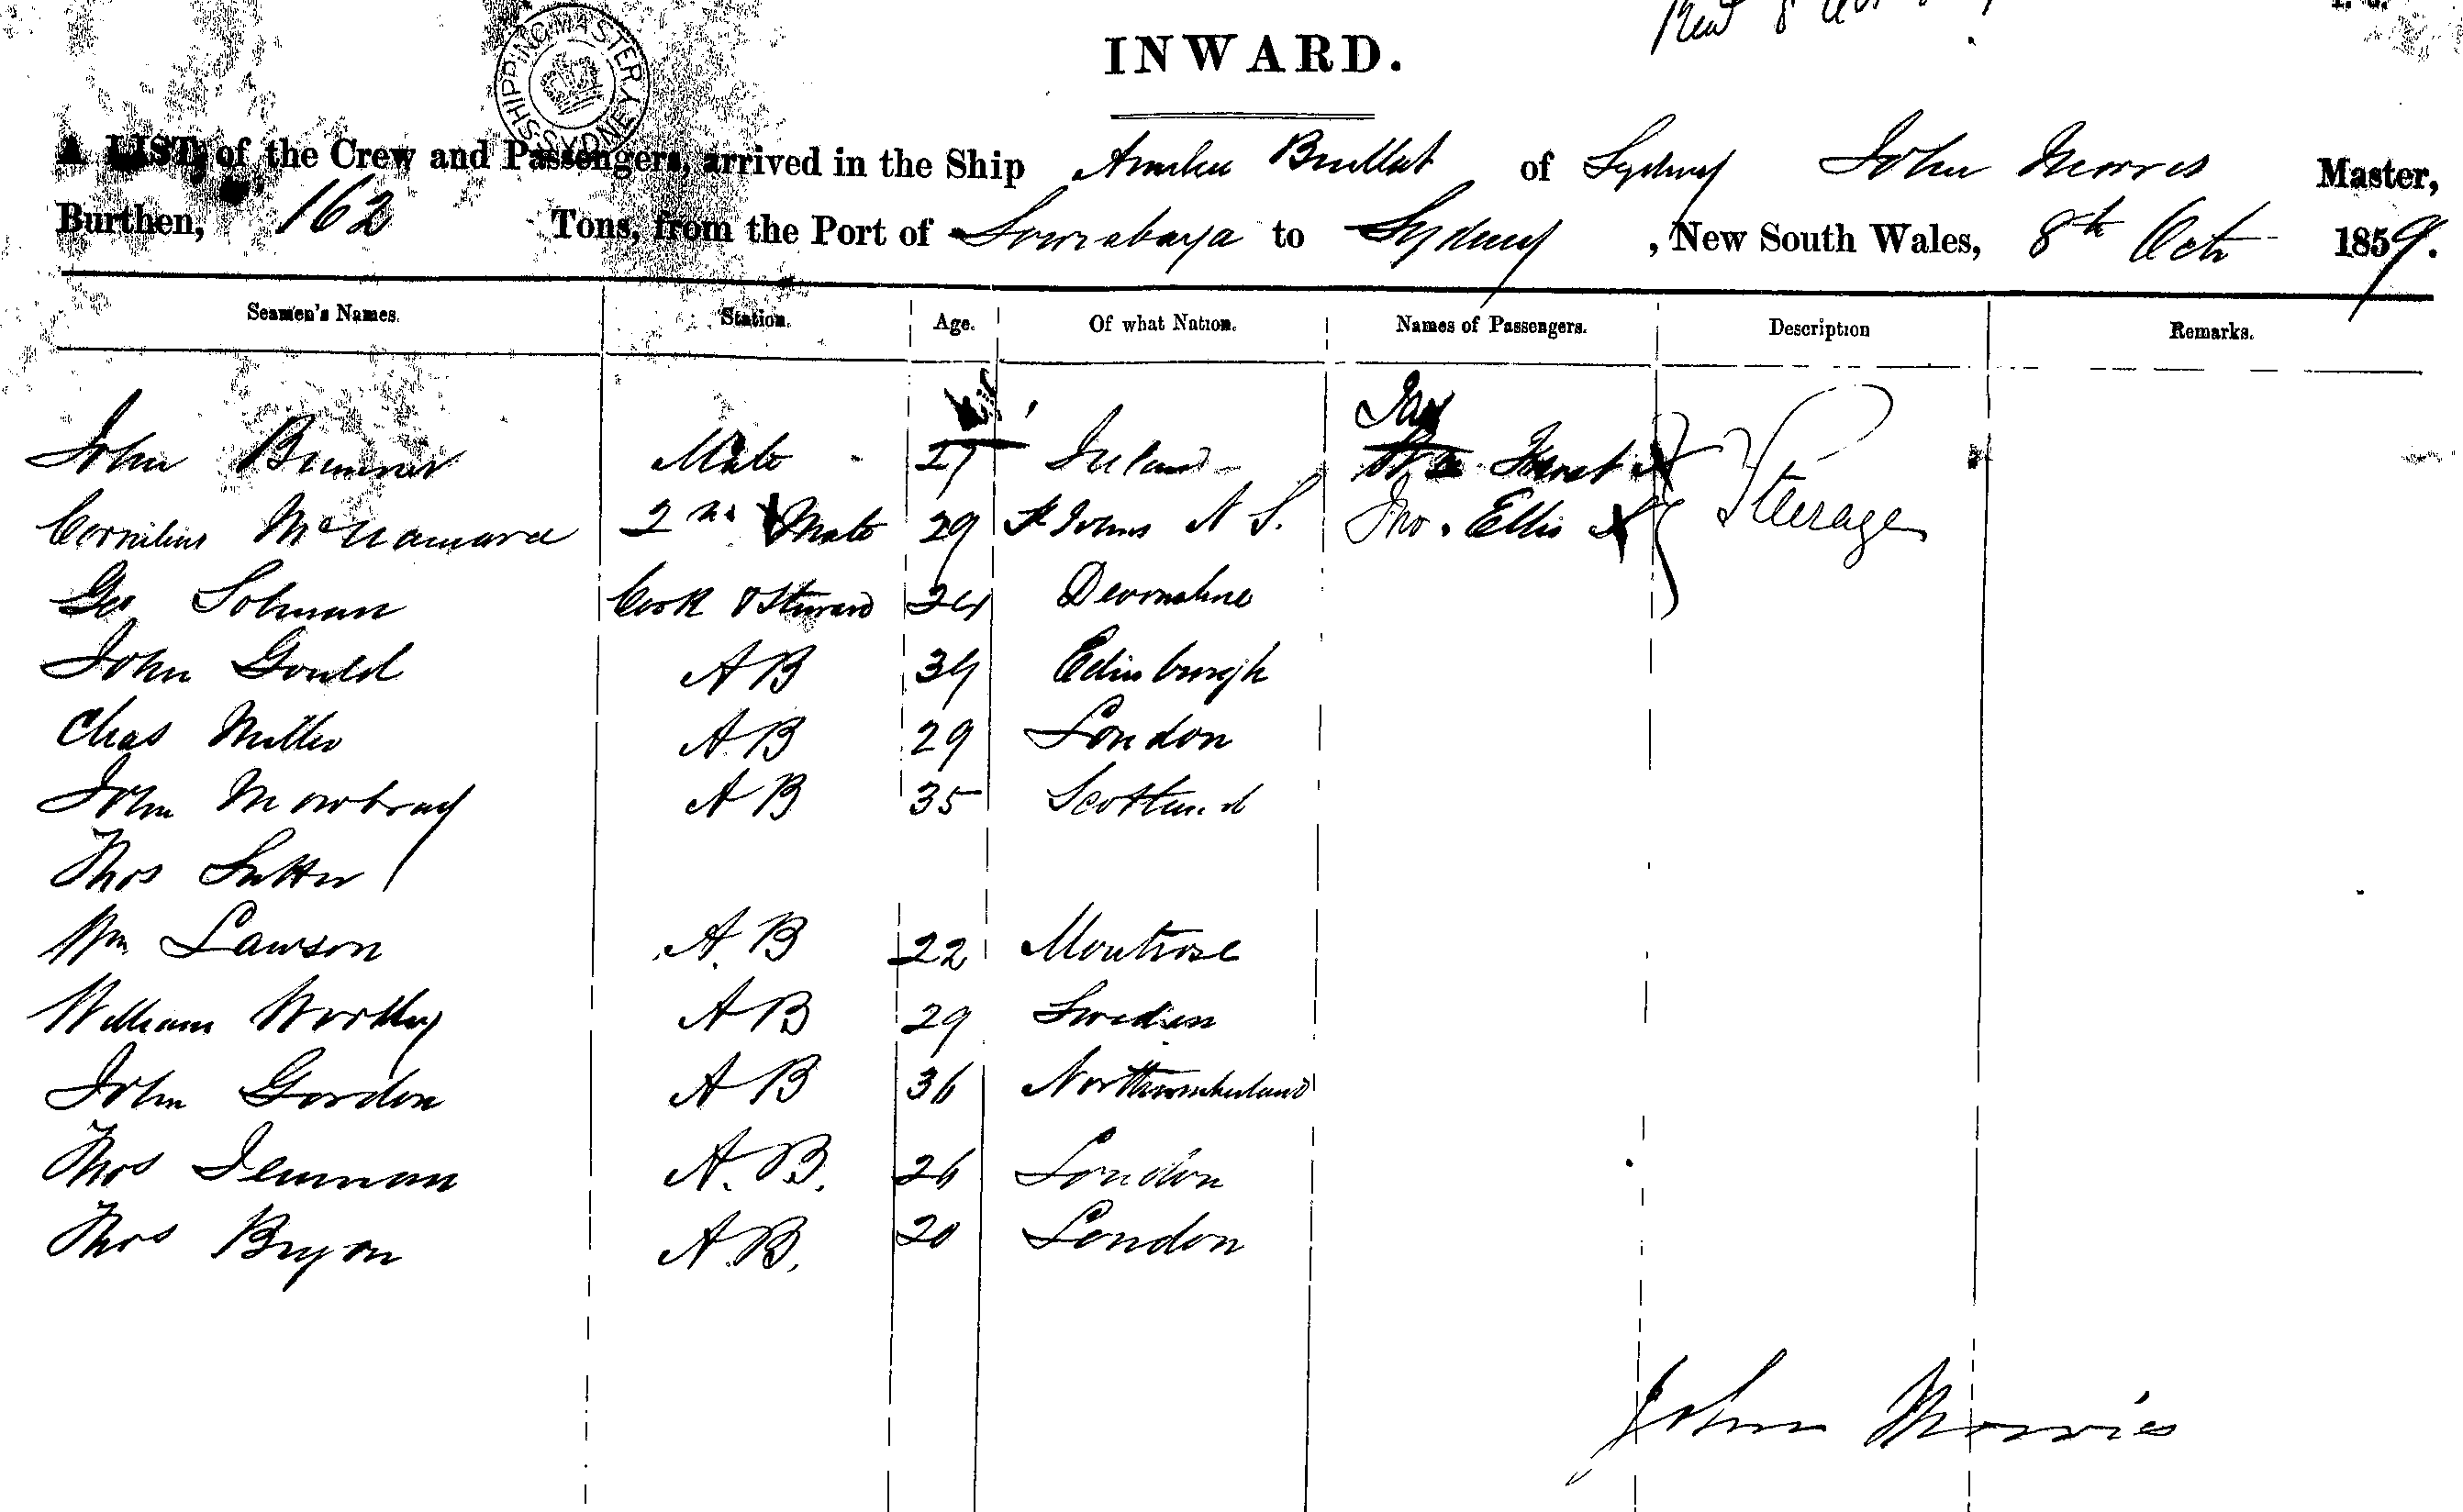 SHIPPING MASTER SYDNEY
INWARD.
A LIST, of the Crew and Passengers, arrived in the Ship of Sydney John Morris Master,
Burthen, 162 Tons, from the Port of Sourabaya to Sydney, New South Wales, 8th Oct 1859.
Seamen's Names. Station. Age. Of what Nation. Names of Passengers. Description Remarks.
John Mate 27 Ireland
Cornilius McNamara 2nd Mate 29 St Johns N S. Jno. Ellis Steerage
Geo Solman Cook & Steward 24 Devonshire
John Gould A B 34 Edinburgh
Chas Miller A.B 29 London
John Mowbray A B 35 Scotland
Thos Sutter
Wm Lawson A. B 22 Montrose
William Worthy A B 29 Sweden
John Gordon A B 36 Northumberland
Thos Denman A. B. 26 London
Thos Bryon A.B. 20 London
John Morris